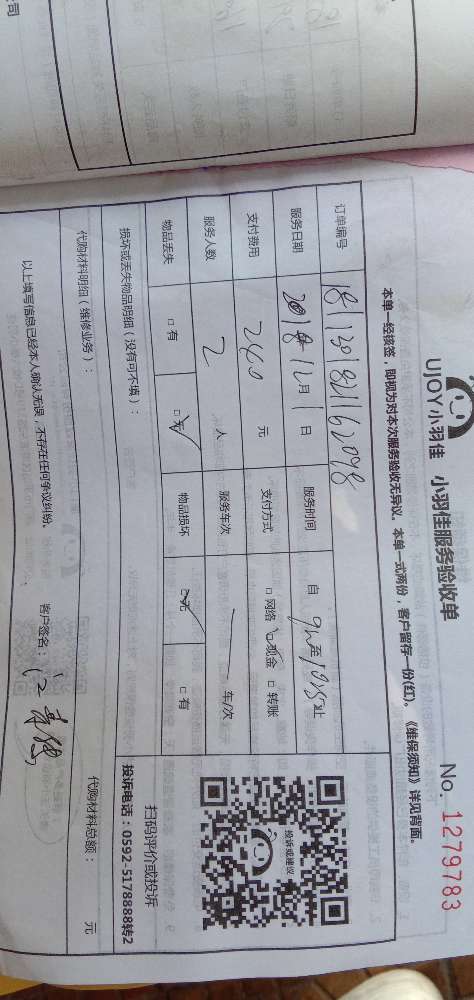 UJOY小羽佳 小羽佳服务验收单
No. 1279783
本单一经核签，即视为对本次服务验收无异议。本单一式两份，客户留存一份(红)。《维保须知》详见背面。
订单编号 1811301821162098
服务日期 2018年12月1日 服务时间 自 9h至1025止
支付费用 240 元 支付方式 □ 网络 □ 现金 □ 转账
服务人数 2 人 服务车次 一 车/次
物品丢失 □ 有 □ 无 物品损坏 □ 无 □ 有
投诉或建议
扫码评价或投诉
投诉电话：0592-5178888转2
损坏或丢失物品明细（没有可不填）：
代购材料明细（维修业务）： 代购材料总额： 元
以上填写信息已经本人确认无误，不存在任何争议纠纷。 客户签名：
司